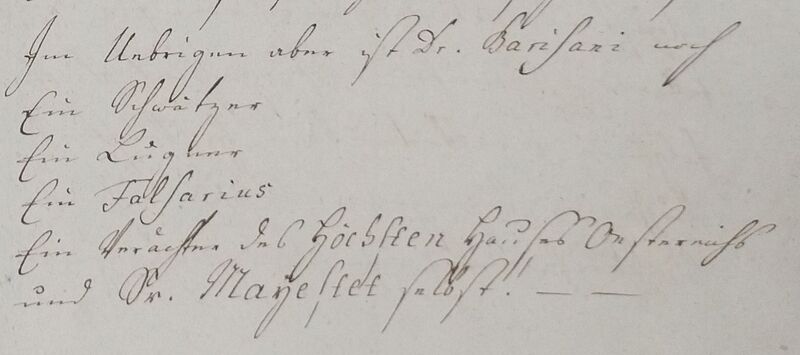 Im Uebrigen aber ist Dr. Barisani noch
Ein Schwätzer
Ein Lugner
Ein Falsarius
Ein Verächter des Höchsten Hauses Oestereichs
und Sr. Mayestet selbst! — —